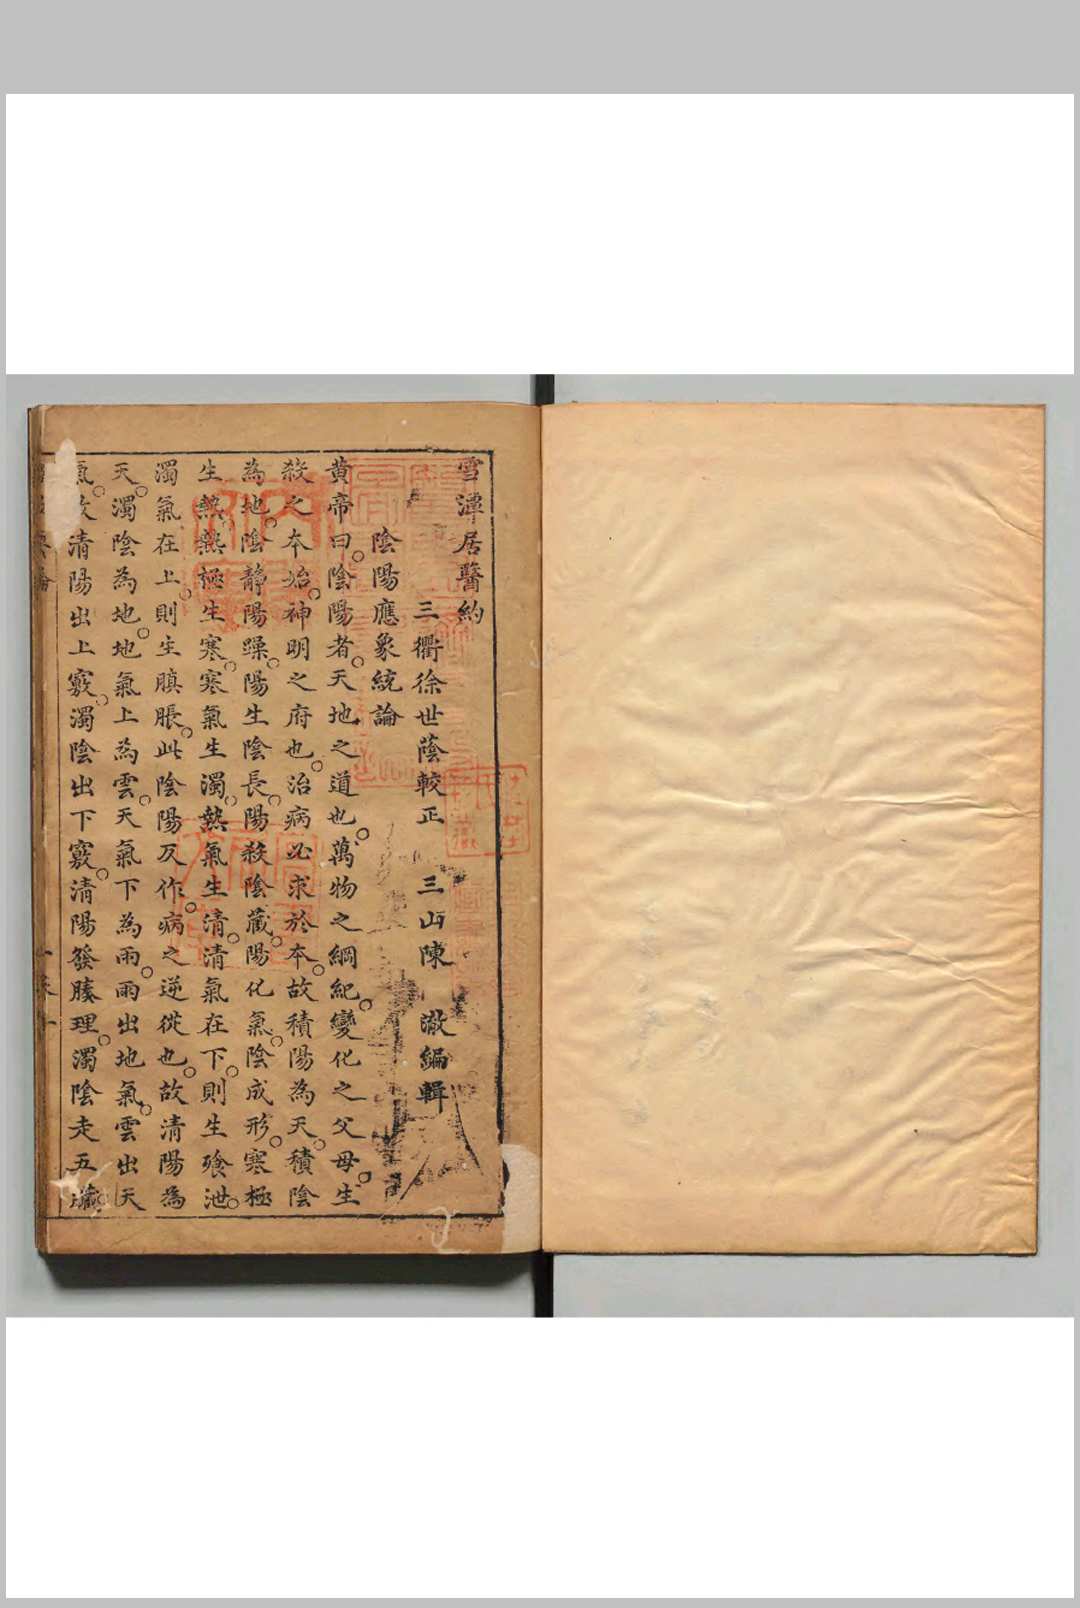 雪潭居醫約
三衢徐世蔭較正　三山陳　澈編輯
陰陽應象統論
黃帝曰。陰陽者。天地之道也。萬物之綱紀。變化之父母。生
殺之本始。神明之府也。治病必求於本。故積陽為天。積陰
為地。陰靜陽躁。陽生陰長。陽殺陰藏。陽化氣。陰成形。寒極
生熱。熱極生寒。寒氣生濁。熱氣生清。清氣在下。則生飱泄。
濁氣在上。則生䐜脹。此陰陽反作。病之逆從也。故清陽為
天。濁陰為地。地氣上為雲。天氣下為雨。雨出地氣。雲出天
氣。故清陽出上竅。濁陰出下竅。清陽發腠理。濁陰走五藏。